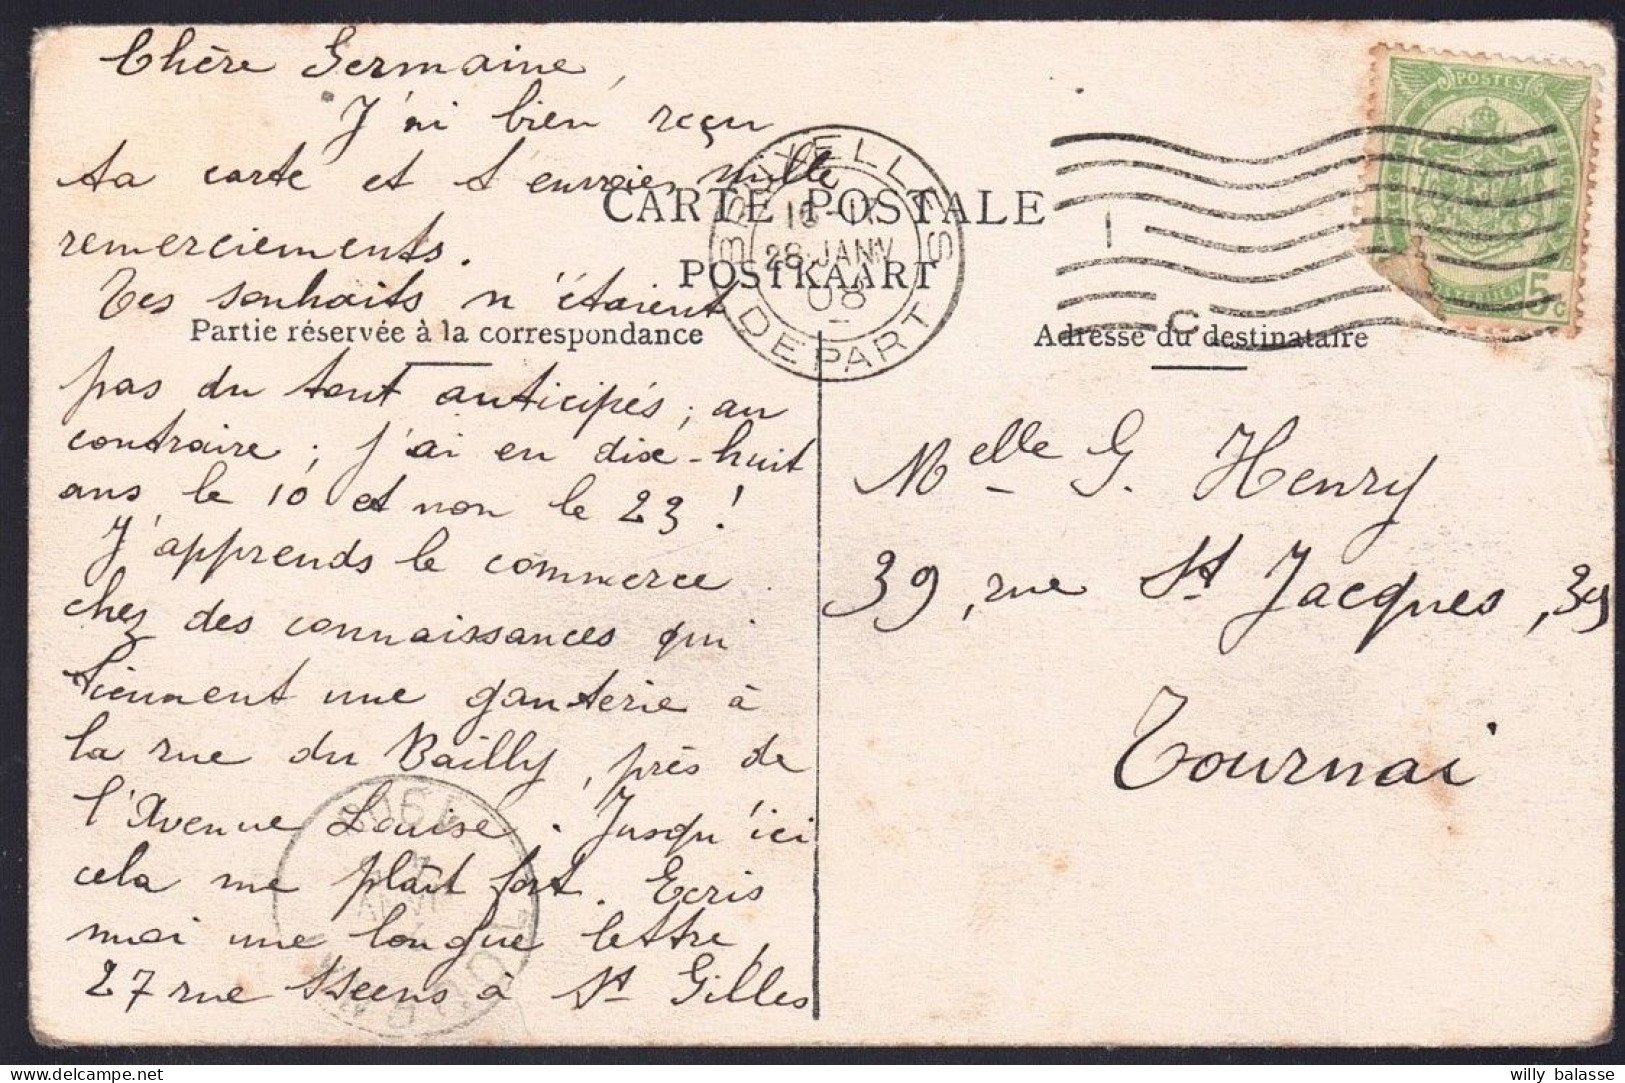 Chère Germaine,
J'ai bien reçu
ta carte et t'envoie mille
remerciements.
Tes souhaits n'étaient
pas du tout anticipés; au
contraire; j'ai eu dix-huit
ans le 10 et non le 23!
J'apprends le commerce
chez des connaissances qui
tiennent une ganterie à
la rue du Bailly, près de
l'Avenue Louise. Jusqu'ici
cela me plaît fort. Ecris
moi une longue lettre,
27 rue Steens à St Gilles
CARTE POSTALE
POSTKAART
Partie réservée à la correspondance
Adresse du destinataire
BRUXELLES
28 JANV
08
DEPART
1
C
POSTES
5c
Melle G. Henry
39, rue St Jacques, 39
Tournai
1908
willy balasse